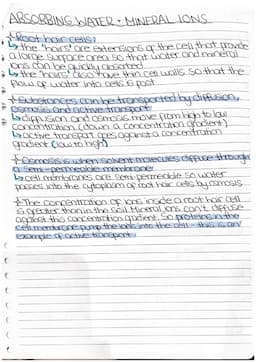 ABSORBING WATER + MINERAL IONS
* Root hair cells:
↳ the "hairs" are extensions of the cell that provide
a large surface area so that water and mineral
ions can be quickly absorbed
↳ the "hairs" also have thin cell walls so that the
flow of water into cells is fast
* Substances can be transported by diffusion,
osmosis and active transport
↳ diffusion and osmosis move from high to low
concentration (down a concentration gradient)
↳ active transport goes against a concentration
gradient (low to high)
* Osmosis is when solvent molecules diffuse through
a semi-permeable membrane
↳ cell membranes are semi-permeable so water
passes into the cytoplasm of root hair cells by osmosis
* The concentration of ions inside a root hair cell
is greater than in the soil. Mineral ions can't diffuse
against this concentration gradient. So proteins in the
cell membrane pump the ions into the cell - this is an
example of active transport